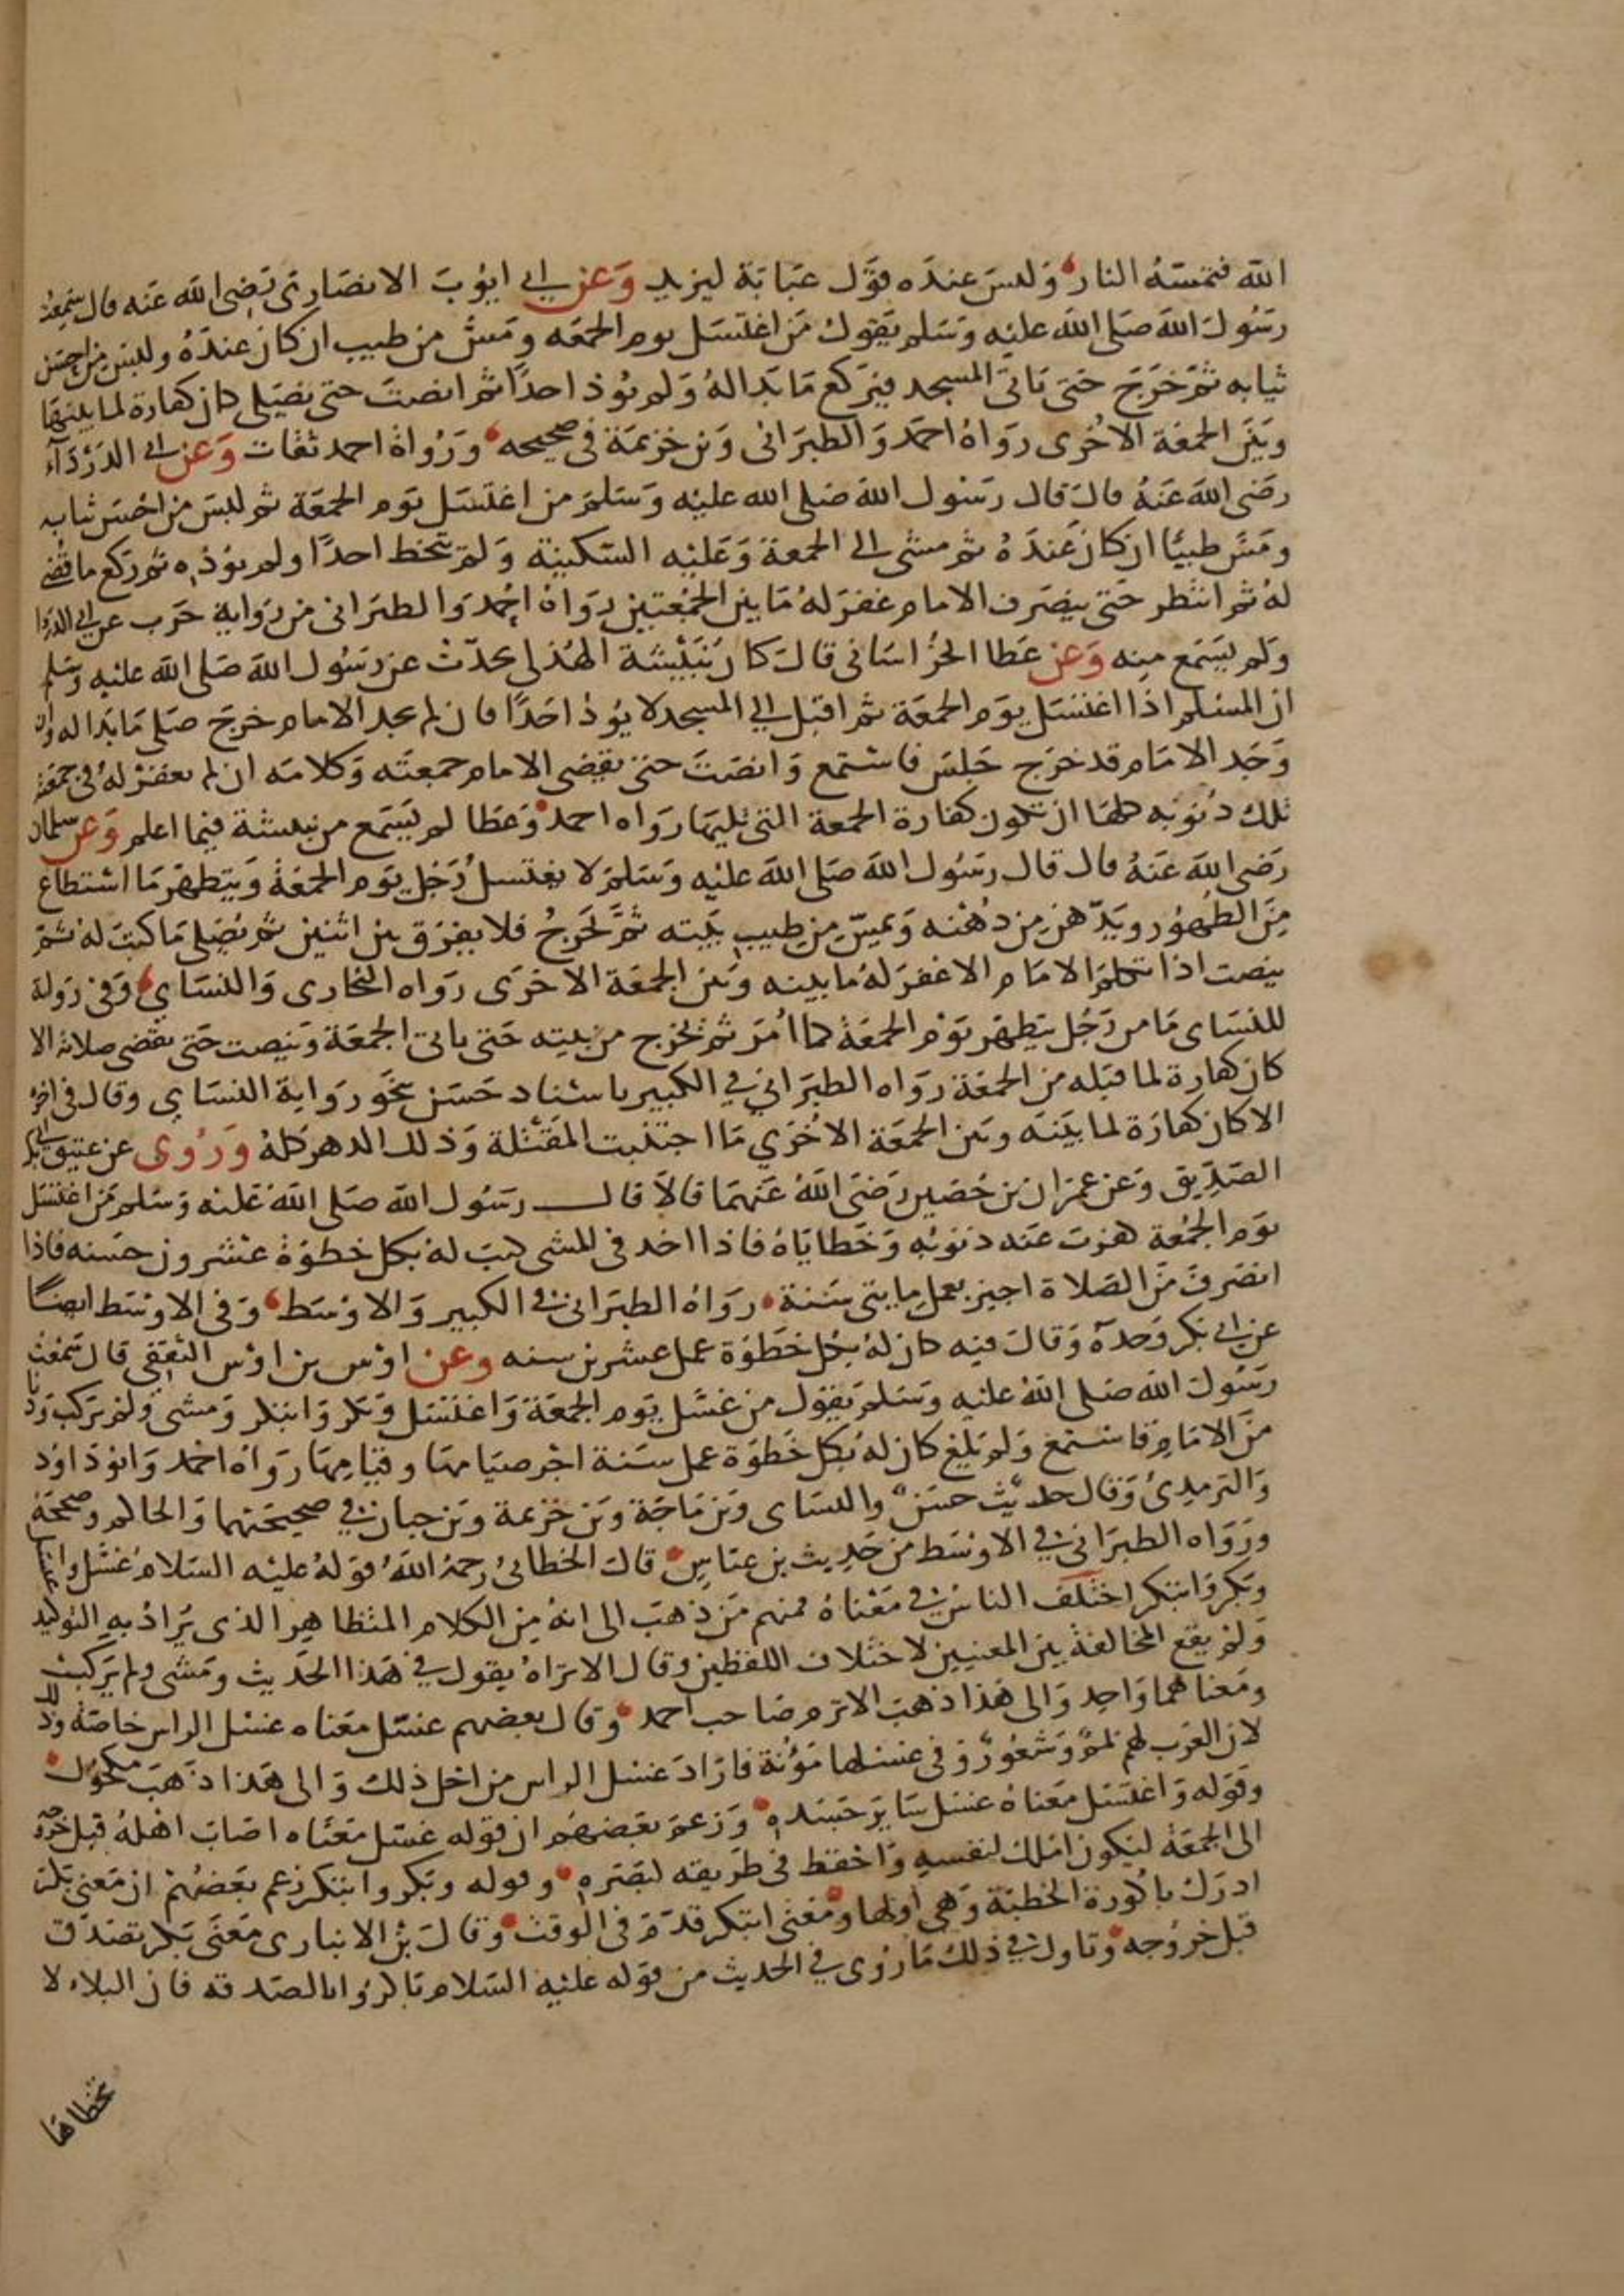 الله فتمسه النار وليس عنده قول عباية ليزيد وعن ابي ايوب الانصاري رضي الله عنه قال سمعت
رسول الله صلى الله عليه وسلم يقول من اغتسل يوم الجمعه ومس من طيب ان كان عنده ولبس من احسن
ثيابه ثم خرج حتى ياتي المسجد فيركع ما بدا له ولم يوذ احدا ثم انصت حتى يصلي كان كفارة لما بينها
وبين الجمعة الاخرى رواه احمد والطبراني وبن خزيمة في صحيحه ورواة احمد ثقات وعن ابي الدرداء
رضي الله عنه قال قال رسول الله صلى الله عليه وسلم من اغتسل يوم الجمعة ثم لبس من احسن ثيابه
ومس طيبا ان كان عنده ثم مشى الى الجمعة وعليه السكينة ولم يتخط احدا ولم يوذه ثم ركع ما قضي
له ثم انتظر حتى ينصرف الامام غفر له ما بين الجمعتين رواه احمد والطبراني من رواية حرب عن ابي الدردا
ولم يسمع منه وعن عطا الخراساني قال كان نبيشة الهذلي يحدث عن رسول الله صلى الله عليه وسلم
ان المسلم اذا اغتسل يوم الجمعة ثم اقبل الى المسجد لا يوذ احدا فان لم يجد الامام خرج صلى ما بدا له وان
وجد الامام قد خرج جلس فاستمع وانصت حتى يقضي الامام جمعته وكلامه ان لم يغفر له في جمعته
تلك ذنوبه كلها ان تكون كفارة الجمعة التي تليها رواه احمد وعطا لم يسمع من نبيشة فيما اعلم وعن سلمان
رضي الله عنه قال قال رسول الله صلى الله عليه وسلم لا يغتسل رجل يوم الجمعة ويتطهر ما استطاع
من الطهور ويدهن من دهنه ويمس من طيب بيته ثم يخرج فلا يفرق بين اثنين ثم يصلي ما كتب له ثم
ينصت اذا تكلم الامام الا غفر له ما بينه وبين الجمعة الاخرى رواه البخاري والنسائي وفي رواية
للنساي ما من رجل يتطهر يوم الجمعة كما امر ثم يخرج من بيته حتى ياتي الجمعة وينصت حتى يقضي صلاته الا
كان كفارة لما قبله من الجمعة رواه الطبراني في الكبير باسناد حسن نحو رواية النساي وقال في اخره
الا كان كفارة لما بينه وبين الجمعة الاخري ما اجتنبت المقتلة وذلك الدهر كله وروى عن عتيق ابي بكر
الصديق وعن عمران بن حصين رضي الله عنهما قالا قال رسول الله صلى الله عليه وسلم من اغتسل
يوم الجمعة كفرت عنه ذنوبه وخطاياه فاذا اخذ في المشي كتب له بكل خطوة عشرون حسنه فاذا
انصرف من الصلاة اجيز بعمل مايتي سنة رواه الطبراني في الكبير والاوسط وفي الاوسط ايضا
عن ابي بكر وحده وقال فيه كان له بكل خطوة عمل عشرين سنه وعن اوس بن اوس الثقفي قال سمعت
رسول الله صلى الله عليه وسلم يقول من غسل يوم الجمعة واغتسل وبكر وابتكر ومشى ولم يركب ودنا
من الامام فاستمع ولم يلغ كان له بكل خطوة عمل سنة اجر صيامها وقيامها رواه احمد وابو داود
والترمذي وقال حديث حسن والنساي وبن ماجة وبن خزيمة وبن حبان في صحيحهما والحاكم وصححه
ورواه الطبراني في الاوسط من حديث بن عباس قال الخطابي رحمه الله قوله عليه السلام غسل واغتسل
وبكر وابتكر اختلف الناس في معناه فمنهم من ذهب الى انه من الكلام المتظاهر الذي يراد به التوكيد
ولم يقع المخالفة بين المعنيين لاختلاف اللفظين وقال الا تراه يقول في هذا الحديث ومشى ولم يركب
ومعناهما واحد والى هذا ذهب الاثرم صاحب احمد وقال بعضهم غسل معناه غسل الراس خاصة وذلك
لان العرب لهم لمم وشعور وفي غسلها مؤنة فاراد غسل الراس من اجل ذلك والى هذا ذهب مكحول
وقوله واغتسل معناه غسل ساير جسده وزعم بعضهم ان قوله غسل معناه اصاب اهله قبل خروجه
الى الجمعة ليكون املك لنفسه واحفظ في طريقه لبصره وقوله وبكر وابتكر زعم بعضهم ان معنى بكر
ادرك باكورة الخطبة وهي اولها ومعنى ابتكر قدم في الوقت وقال بن الانباري معنى بكر تصدق
قبل خروجه وتاول في ذلك ما روى في الحديث من قوله عليه السلام باكروا بالصدقه فان البلاء لا
تخطاها